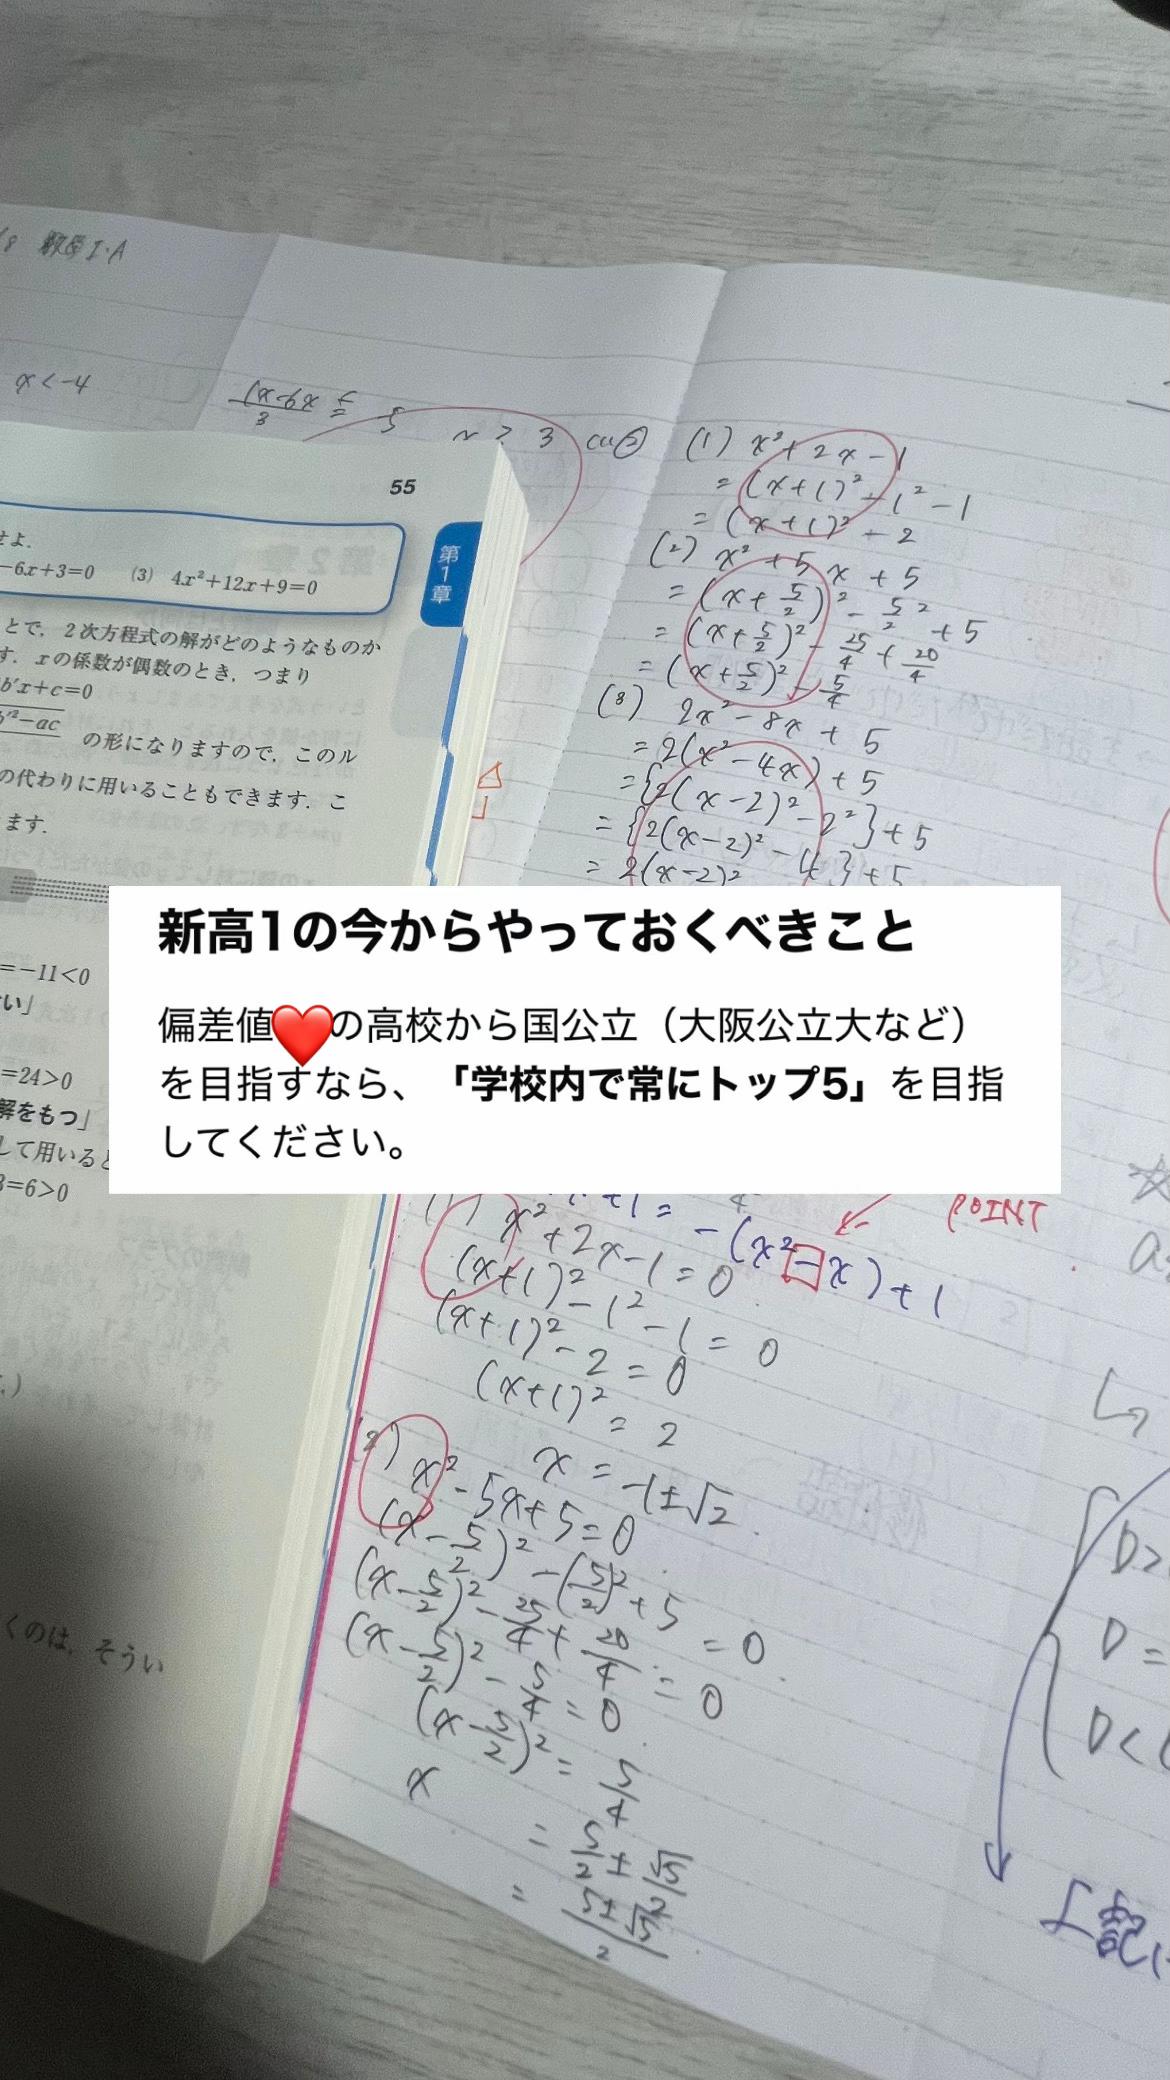 数学I・A
x<-4
55
せよ.
-6x+3=0 (3) 4x²+12x+9=0
第1章
とで,2次方程式の解がどのようなものか
す.xの係数が偶数のとき,つまり
b'x+c=0
b'²-ac の形になりますので,このル
の代わりに用いることもできます.こ
ます.
=-11<0
い」
=24>0
解をもつ」
して用いると
3=6>0
くのは,そうい
(1) x²+2x-1
=(x+1)²-1²-1
=(x+1)²-2
(2) x²+5x+5
=(x+5/2)²-5/2²+5
=(x+5/2)²-25/4+20/4
=(x+5/2)²-5/4
(3) 2x²-8x+5
=2(x²-4x)+5
={2(x-2)²-2²}+5
={2(x-2)²-4}+5
=2(x-2)²
新高1の今からやっておくべきこと
偏差値❤️の高校から国公立(大阪公立大など)
を目指すなら、「学校内で常にトップ5」を目指
してください。
POINT
-(x²-x)+1
(1) x²+2x-1=0
(x+1)²-1²-1=0
(x+1)²-2=0
(x+1)²=2
x=-1±√2
(2) x²-5x+5=0
(x-5/2)²-(5/2)²+5=0
(x-5/2)²-25/4+20/4=0
(x-5/2)²-5/4=0
(x-5/2)²=5/4
x
=5/2±√5/2
=5±√5/2
D>
D=
D<
上記